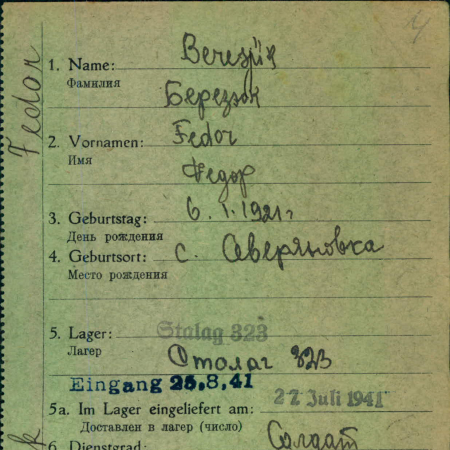 4
1. Name: Berezjik
Фамилия
Березюк
2. Vornamen: Fedor
Имя
Федор
3. Geburtstag: 6. I. 1921 г
День рождения
4. Geburtsort: с. Аверяновка
Место рождения
5. Lager: Stalag 323
Лагер
Сталаг 323
Eingang 25.8.41
5a. Im Lager eingeliefert am: 27 Juli 1941
Доставлен в лагер (число)
6. Dienstgrad: Солдат
Fedor